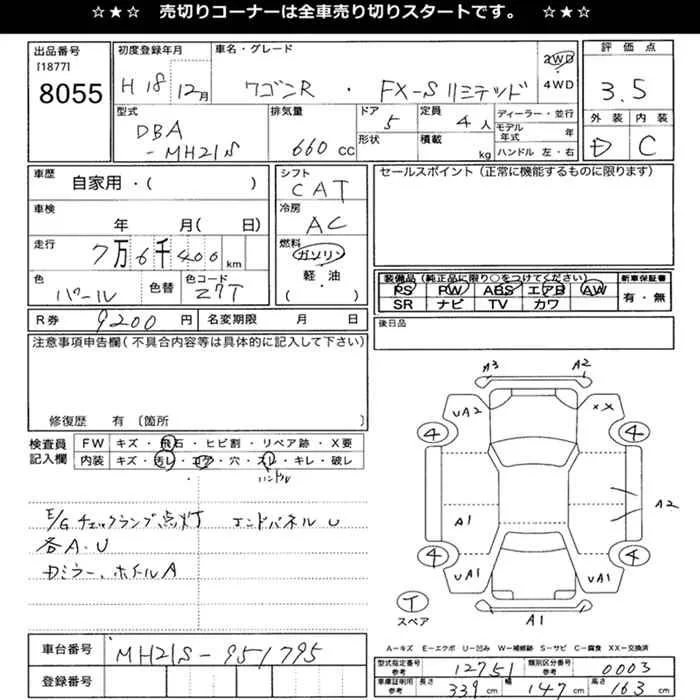 ☆★☆ 売切りコーナーは全車売り切りスタートです。 ☆★☆
出品番号 初度登録年月 車名・グレード 2WD 評価点
[1877]
8055 H18 12月 ワゴンR・FX-Sリミテッド 4WD 3.5
型式 排気量 ドア 定員 ディーラー・並行 外装 内装
DBA 5 4人 モデル年式 年 D C
-MH21S 660cc 形状 積載 kg ハンドル 左・右
車歴 自家用・( ) シフト CAT セールスポイント(正常に機能するものに限ります)
車検 年 月( 日) 冷房 AC
走行 7万6千400km 燃料 ガソリン
色 パール 色替 色コード Z7T 軽・油 ( )
装備品(純正品に限り○をつけてください) 新車保証書
PS PW ABS エアB AW 有・無
SR ナビ TV カワ
R券 9200円 名変期限 月 日 後日品
注意事項申告欄(不具合内容等は具体的に記入して下さい)
修復歴 有〔箇所 〕
検査員 FW キズ・飛石・ヒビ割・リペア跡・X要
記入欄 内装 キズ・汚レ・コゲ・穴・スレ・キレ・破レ
ハンドル
E/Gチェックランプ点灯 エンドパネルU
各A・U
Dミラー、ホイルA
A3 A2
UA2 XX
4 4
A1 A2
4 4
UA1 UA1
T A1
スペア
A-キズ E-エクボ U-凹み W-補修跡 S-サビ C-腐食 XX-交換済
車台番号 MH21S-951795
登録番号
型式指定番号 参考 12751 類別区分番号 参考 0003
車庫証明用 参考 長さ 339cm 幅 147cm 高さ 163cm